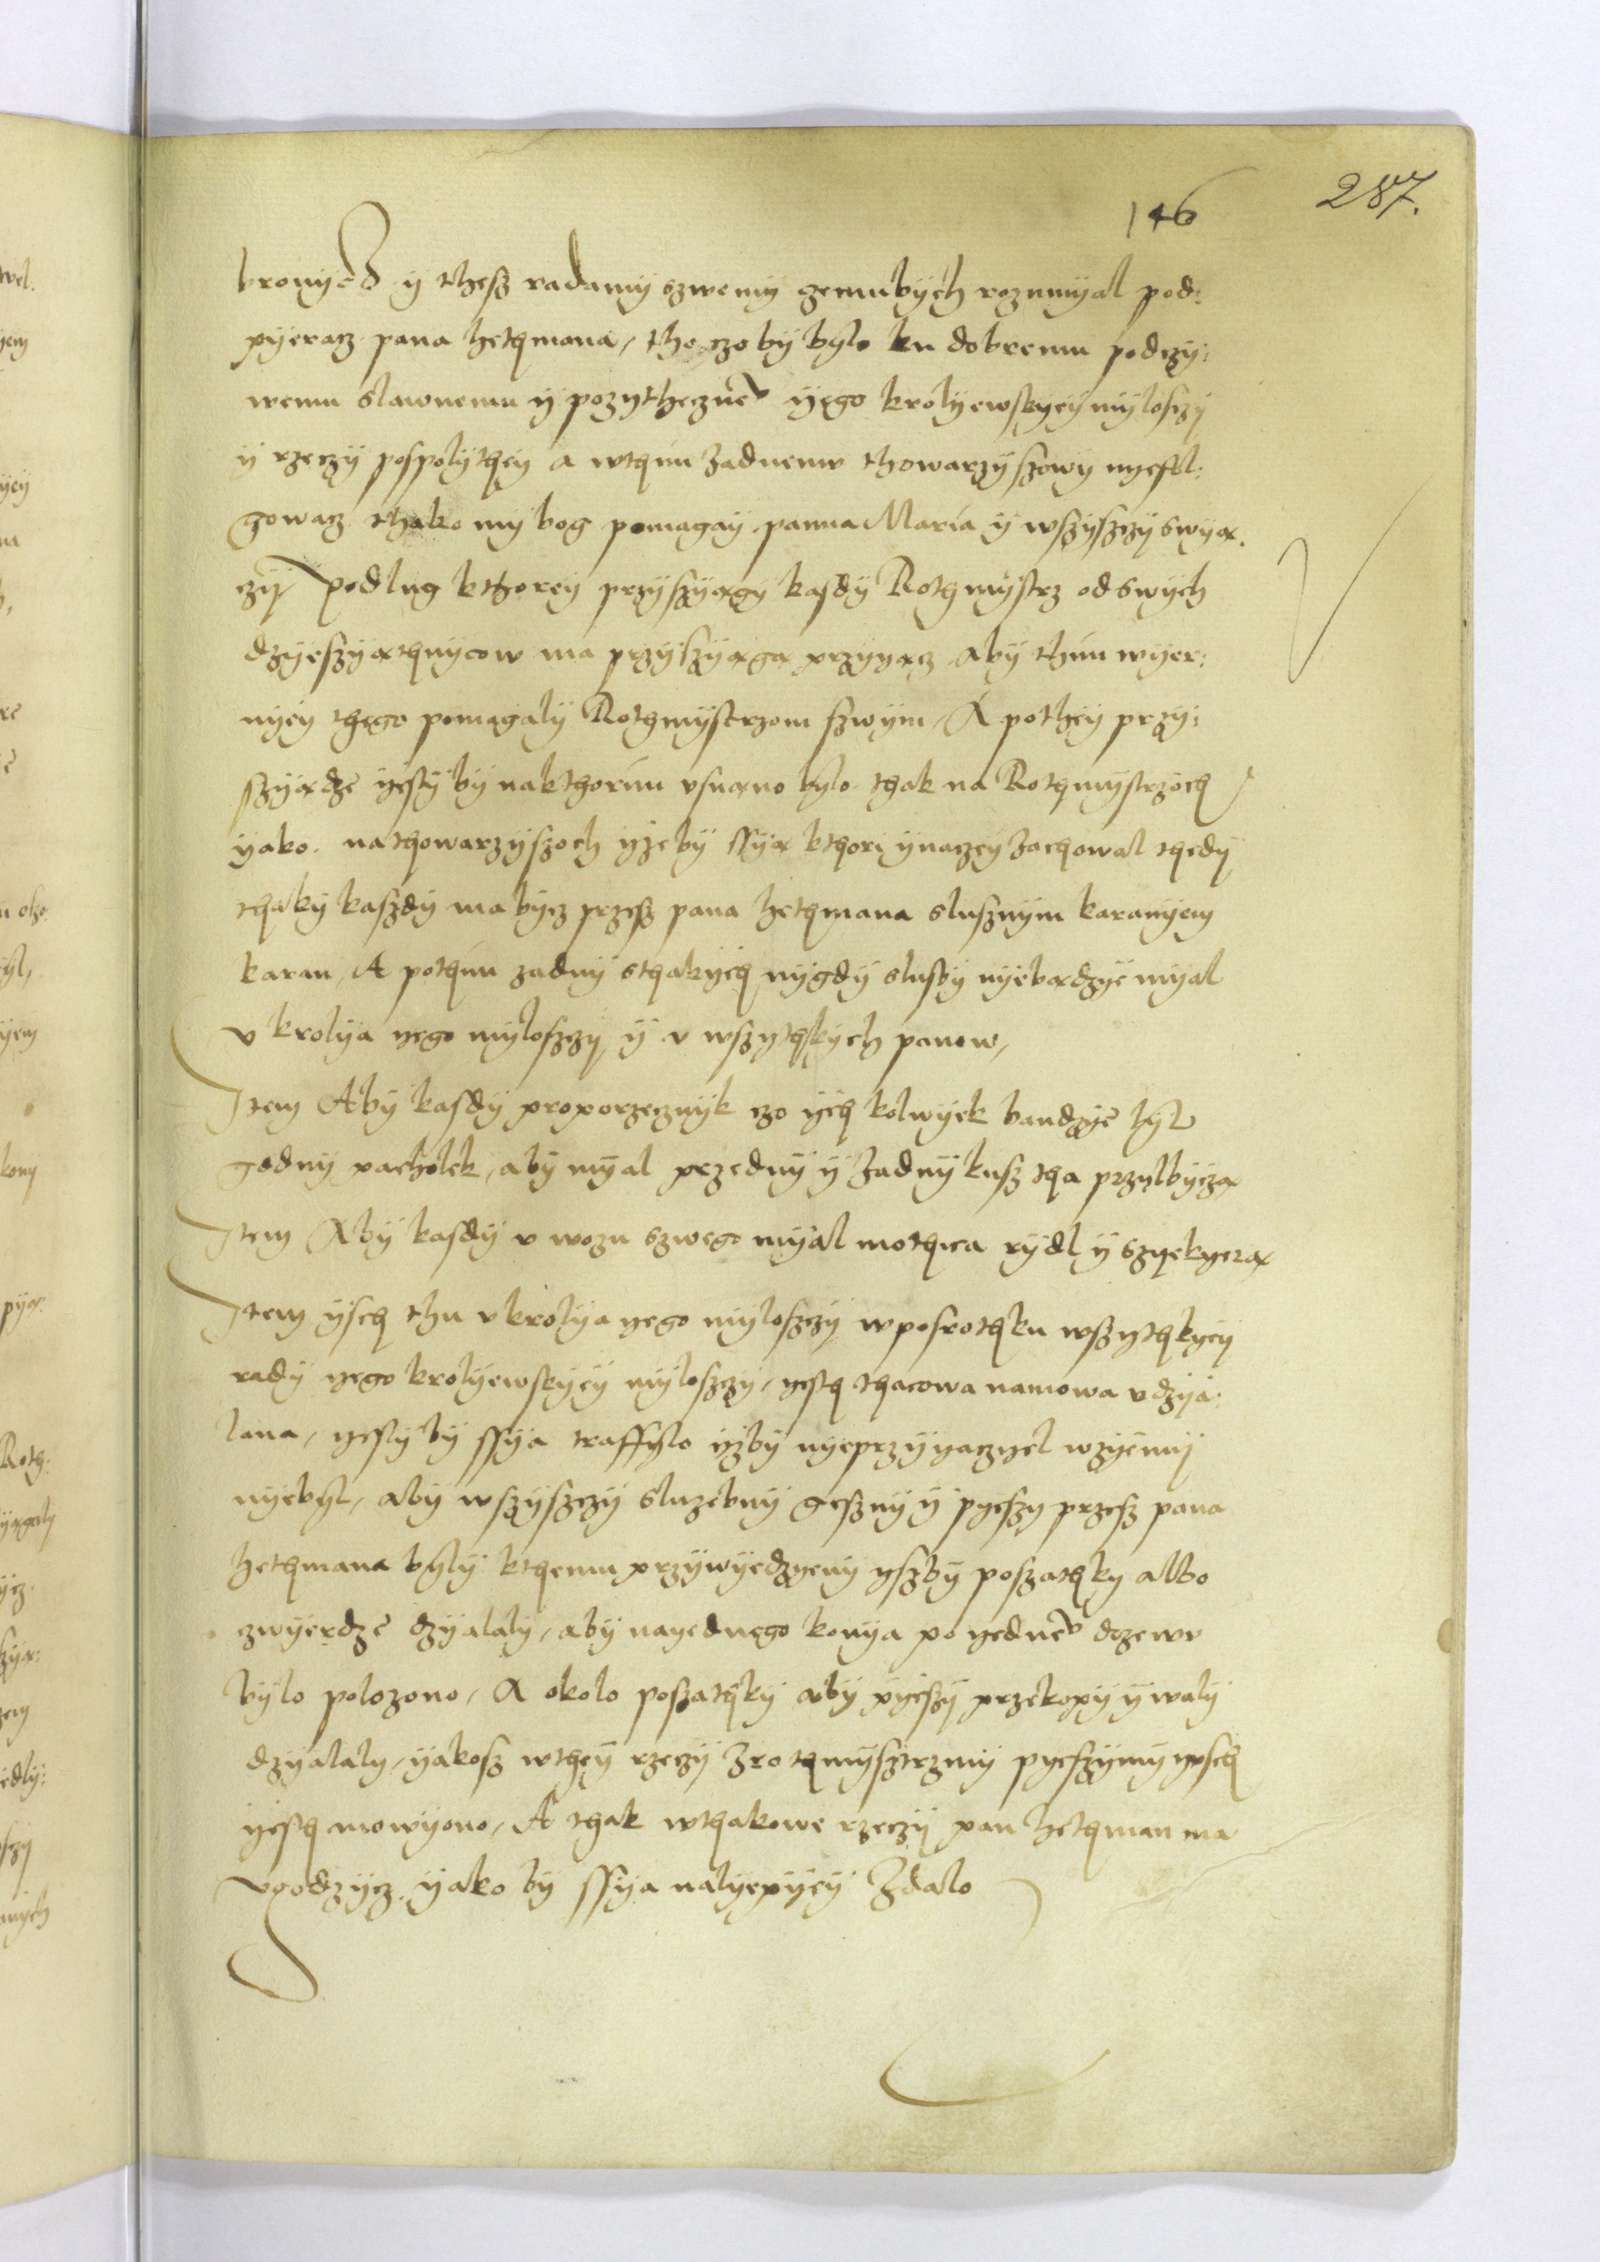 146 287.
bronycz y thesz radamy szwemy gemubych rozumyal pod:
pyeracz pana hethmana, tho czo by bylo ku dobremu podczy:
wemu slawnemu y pozythecznem̃ yego krolyewskyey myloszy
y rzeczy pospolythey a wthim zadnemu thowarzyszowy nyeffl:
gowacz thako my bog pomagay panna Maria y wszysczy swyą:
czy podlug kthorey przyszyągy kasdy Rothmystrz od swych
dzyeszyąthnycow ma przyszyągą przyyącz aby thim wyer:
nyey thego pomagaly Rothmystrzom szwym, A pothey przy:
szyądze yesly by nakthorim usnano bylo thak na Rothmystrzoch
yako na thowarzyszoch yzeby ssyą kthori ynaczey zachowal thedy
thaky kaszdy ma bycz przesz pana hethmana slusznym karanyem
karan, A pothim zadny sthakych nygdy slusby nyebądzye myal
v krolya yego myloszczy y v wszythkych panow,
Item Aby kasdy proporzecznyk czo ych kolwyek bandzye byl
godny pacholek, aby myal przedny y zadny kusz tha przylbyczą
Item Aby kasdy v wozu szwego myal mothica rydl y szyekyerą
Item ysch thu v krolya yego myloszczy wposrothku wszythkyey
rady yego krolyewskyey myloszczy, yesth thacowa namowa vdzya:
lana, yesly by ssya traffylo yzby nyeprzyyaczyel wzyemy
nyebyl, aby wszysczy sluzebny geszny y pyeszy przesz pana
hethmana byly kthemu przywyedzyeny yszby poszathky albo
czwyerdze dzyalaly, aby nayednego konya po yednem̃ drzewu
bylo polozono, A okolo poszathky aby pyeszy przekopy y waly
dzyalaly, yakosz wthey rzeczy zrothmysztrzmy pyeszymy ysch
yesth mowyono, A thak wthakowe rzeczy pan hethman ma
vgodzycz yako by ssya nalyepyey zdalo